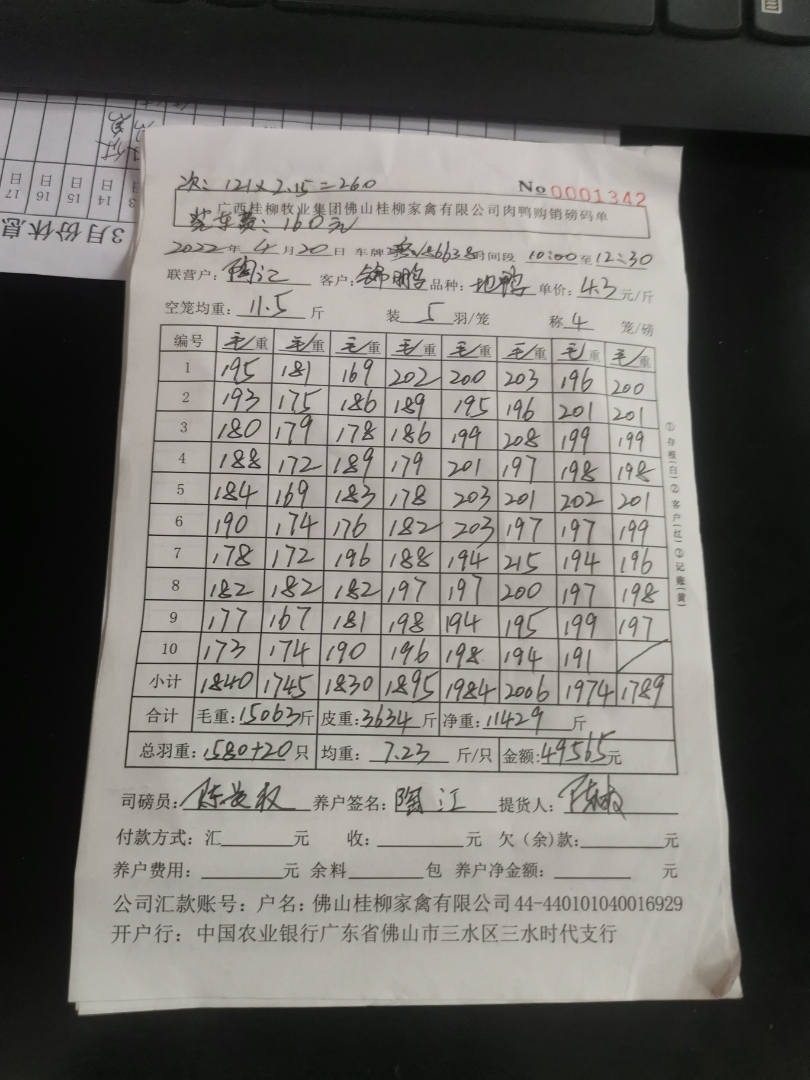 次: 121 x 2.15=260
No 0001342
广西桂柳牧业集团佛山桂柳家禽有限公司肉鸭购销磅码单
装车费: 160元
2022年4月20日 车牌 6638 时间段 10:00至12:30
联营户: 陶江 客户: 锦鹏 品种: 地鸭 单价: 4.3元/斤
空笼均重: 11.5斤 装5羽/笼 称4笼/磅
编号 毛重 毛重 毛重 毛重 毛重 毛重 毛重 毛重
1 195 181 169 202 200 203 196 200
2 193 175 186 189 195 196 201 201
3 180 179 178 186 199 208 199 199
4 188 172 189 179 201 197 198 198
5 184 169 183 178 203 201 202 201
6 190 174 176 182 203 197 197 199
7 178 172 196 188 194 215 194 196
8 182 182 182 197 197 200 197 198
9 177 167 181 198 194 195 199 197
10 173 174 190 196 198 194 191 /
小计 1840 1745 1830 1895 1984 2006 1974 1789
合计 毛重: 15063斤 皮重: 3634斤 净重: 11429斤
总羽重: 1580+20只 均重: 7.23斤/只 金额: 49565元
司磅员: 养户签名: 陶江 提货人:
付款方式: 汇 元 收: 元 欠(余)款: 元
养户费用: 元 余料 包 养户净金额: 元
公司汇款账号: 户名: 佛山桂柳家禽有限公司44-440101040016929
开户行: 中国农业银行广东省佛山市三水区三水时代支行
①存根(白)②客户(红)③记账(黄)
3月份休息
17日 16日 15日 14日 13